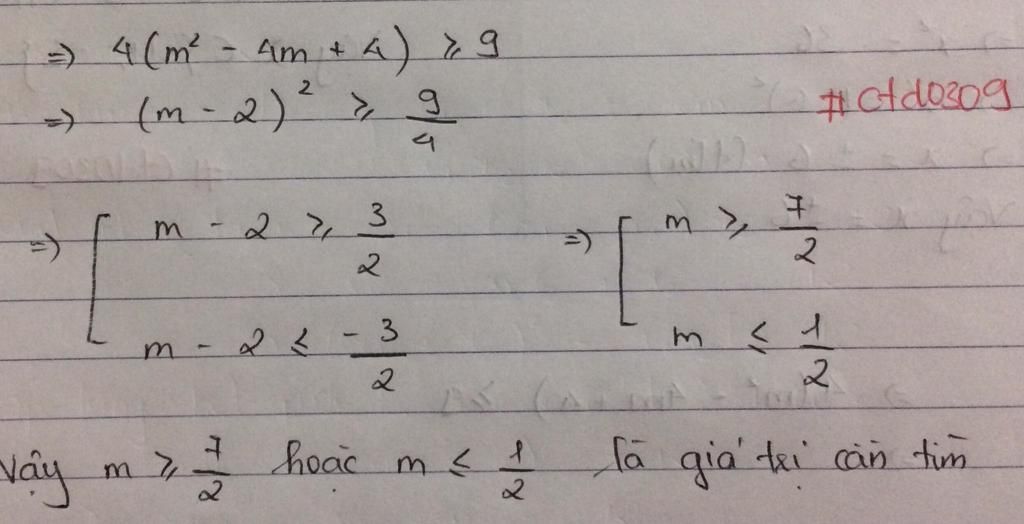 => 4(m² - 4m + 4) ≥ 9
=> (m - 2)² ≥ 9/4
#ctd0309
=> [ m - 2 ≥ 3/2 => [ m ≥ 7/2
m - 2 ≤ -3/2 m ≤ 1/2
Vậy m ≥ 7/2 hoặc m ≤ 1/2 là giá trị cần tìm